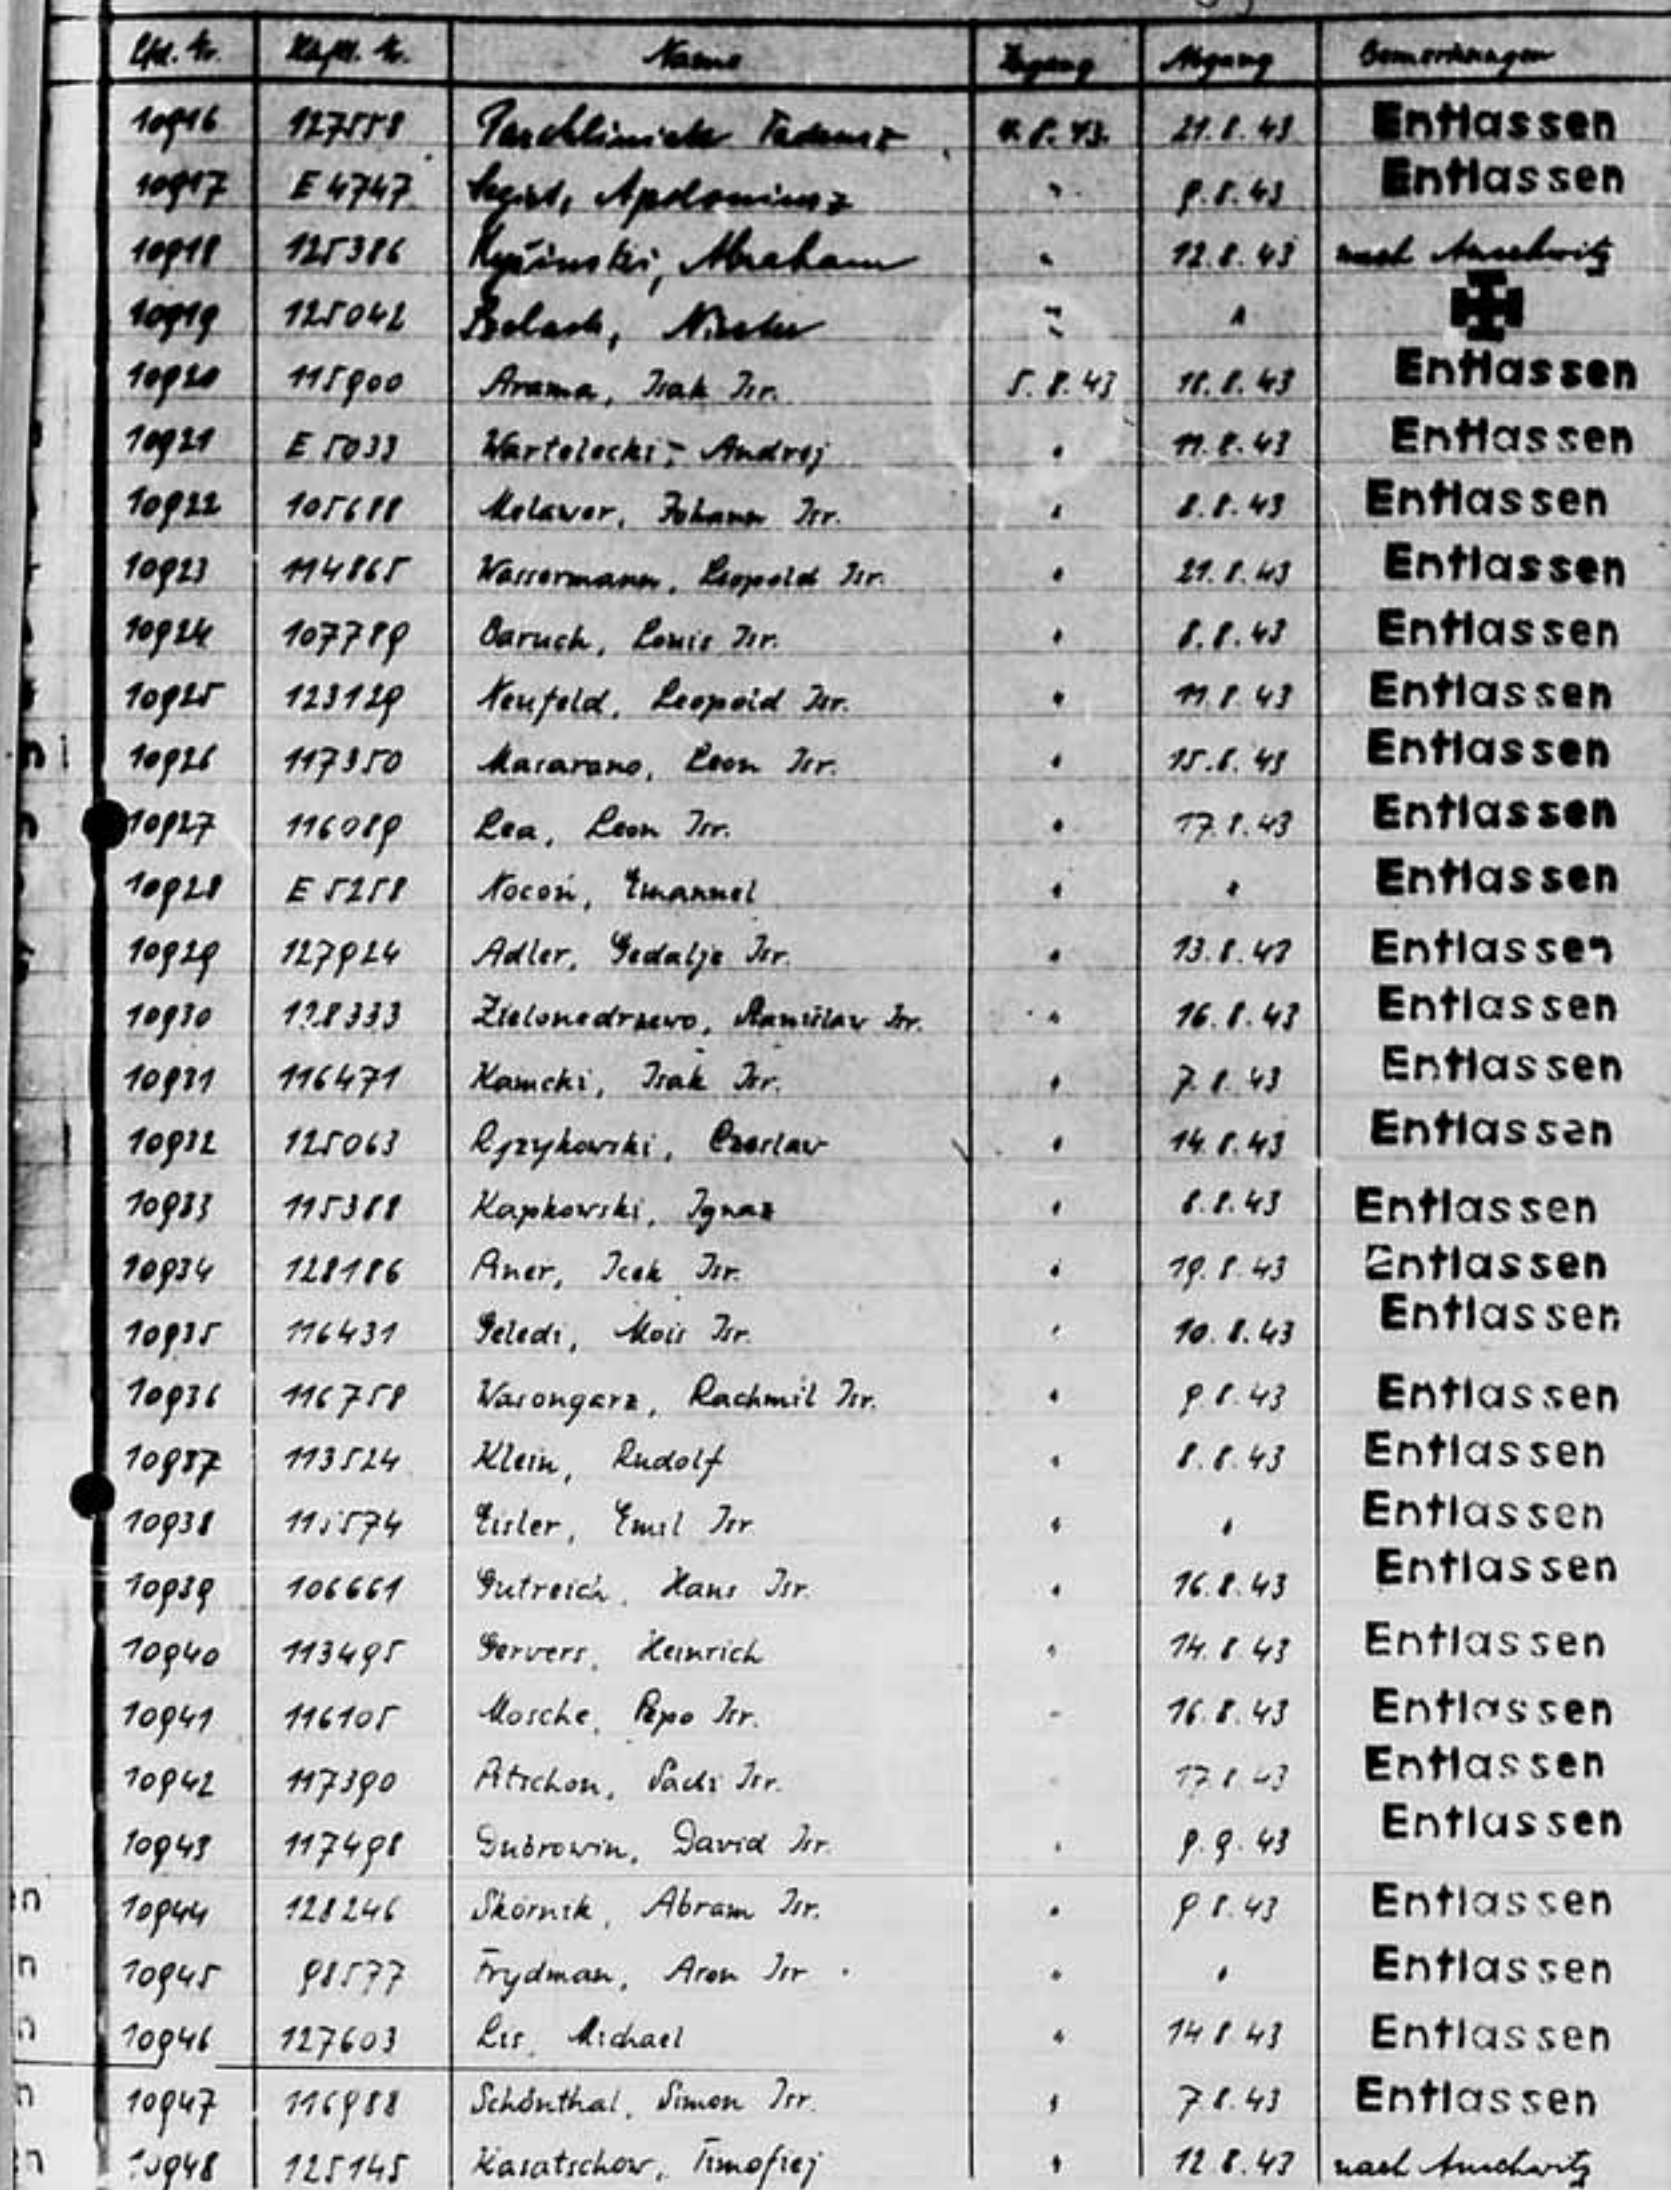 Lfd. Nr. Häftl. Nr. Name Zugang Abgang Bemerkungen
10916 127558 4.8.43. 21.8.43 Entlassen
10917 E 4747 Apoloniusz " 9.8.43 Entlassen
10918 125386 Abraham " 12.8.43 nach Auschwitz
10919 125042 " "
10920 115900 Arama, Isak Isr. 5.8.43 18.8.43 Entlassen
10921 E 5033 Wartelecki, Andrej " 11.8.43 Entlassen
10922 105688 Melawer, Johann Isr. " 8.8.43 Entlassen
10923 114865 Wassermann, Leopold Isr. " 21.8.43 Entlassen
10924 107789 Baruch, Louis Isr. " 8.8.43 Entlassen
10925 123129 Neufeld, Leopold Isr. " 11.8.43 Entlassen
10926 117350 Masarano, Leon Isr. " 15.8.43 Entlassen
10927 116089 Lea, Leon Isr. " 17.8.43 Entlassen
10928 E 5258 Nocoń, Emanuel " " Entlassen
10929 127924 Adler, Gedalje Isr. " 13.8.43 Entlassen
10930 128333 Zielonedrzewo, Stanislav Isr. " 16.8.43 Entlassen
10931 116471 Kamcki, Isak Isr. " 7.8.43 Entlassen
10932 125063 Czeslaw " 14.8.43 Entlassen
10933 115388 Kapkowski, Ignaz " 8.8.43 Entlassen
10934 128186 Icek Isr. " 19.8.43 Entlassen
10935 116431 Geledi, Mois Isr. " 10.8.43 Entlassen
10936 116758 Wasongarz, Rachmil Isr. " 9.8.43 Entlassen
10937 113524 Klein, Rudolf " 8.8.43 Entlassen
10938 115574 Eisler, Emil Isr " " Entlassen
10939 106661 Gutreich, Hans Isr. " 16.8.43 Entlassen
10940 113495 Gervers, Heinrich " 14.8.43 Entlassen
10941 116105 Mosche, Pepo Isr. " 16.8.43 Entlassen
10942 117390 Pitschon, Sadi Isr. 17.8.43 Entlassen
10943 117498 Dubrowin, David Isr. " 9.9.43 Entlassen
10944 128246 Skornik, Abram Isr. " 9.8.43 Entlassen
10945 98577 Frydman, Aron Isr " " Entlassen
10946 127603 Lis, Michael " 14.8.43 Entlassen
10947 116988 Schönthal, Simon Isr. " 7.8.43 Entlassen
10948 125145 Kasatschow, Timofiej " 12.8.43 nach Auschwitz